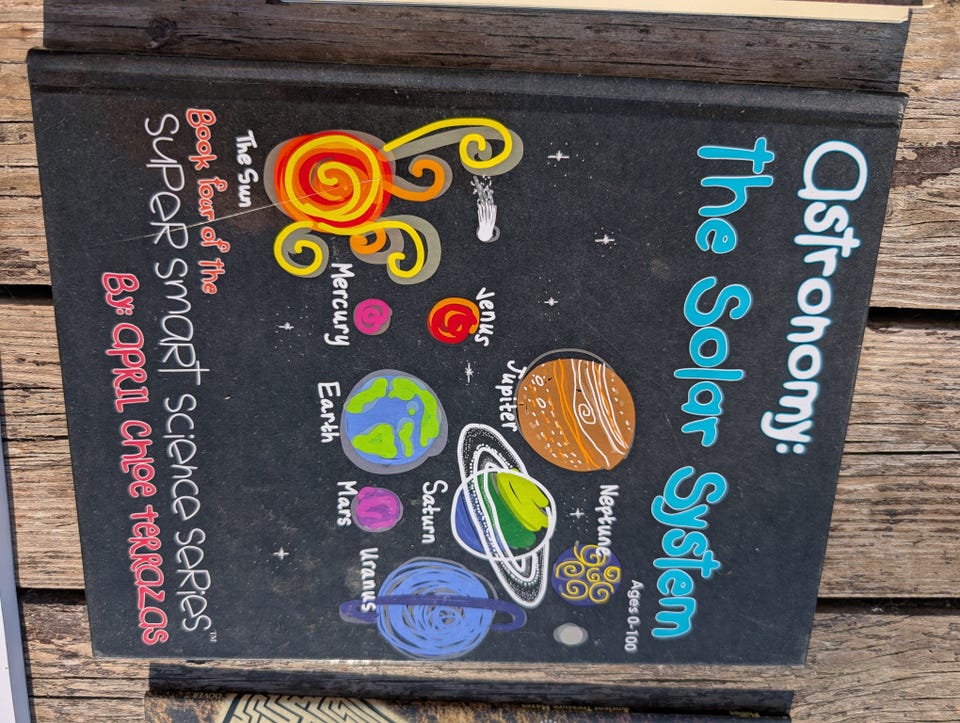 Astronomy:
The Solar System
Ages 0-100
Neptune
Jupiter
Venus
Saturn
Uranus
Mercury
Earth
Mars
The Sun
Book four of the
Super Smart Science Series™
By: April Chloe Terrazas
DOVER
Ancient Treasure Mazes
Phillips